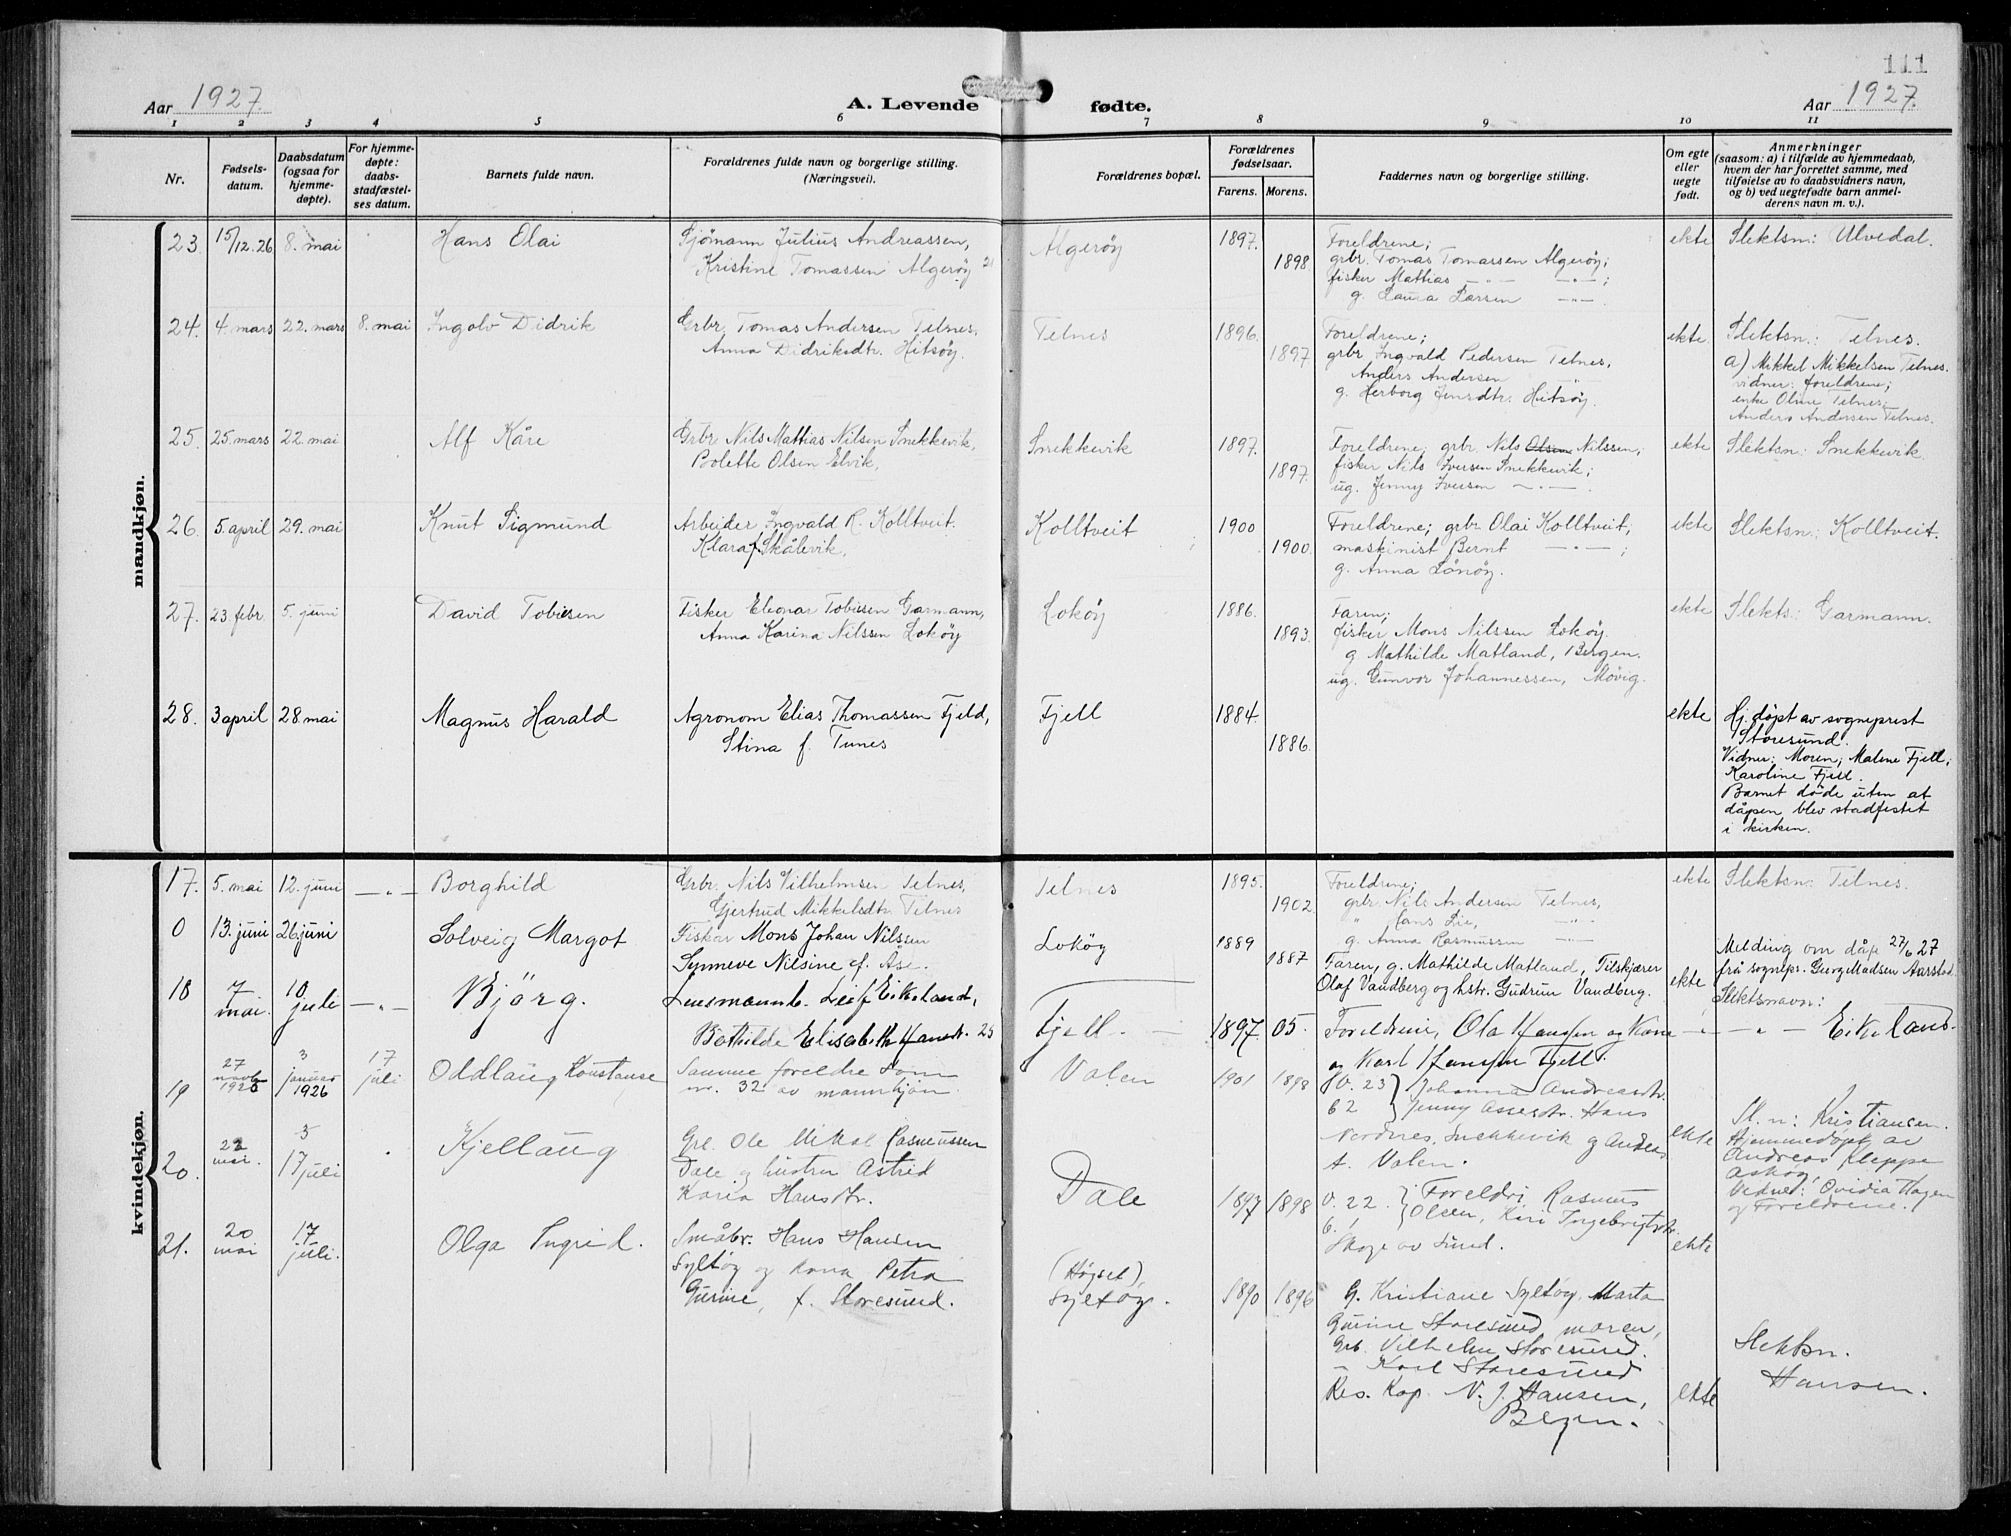 111
Aar 1927.
A. Levende fødte.
Aar 1927.
1 2 3 4 5 6 7 8 9 10 11
Nr.
Fødsels-
datum.
Daabsdatum
(ogsaa for
hjemme-
døpte).
For hjemme-
døpte:
daabs-
stadfæstel-
ses datum.
Barnets fulde navn.
Forældrenes fulde navn og borgerlige stilling.
(Næringsvei).
Forældrenes bopæl.
Forældrenes
fødselsaar.
Farens. Morens.
Faddernes navn og borgerlige stilling.
Om egte
eller
uegte
født.
Anmerkninger
(saasom: a) i tilfælde av hjemmedaab,
hvem der har forrettet samme, med
tilføielse av to daabsvidners navn,
og b) ved uegtefødte barn anmel-
derens navn m. v.).
mandkjøn.
23. 15/12.26 8. mai
Hans Olai
Sjömann Julius Andreassen,
Kristine Tomassen Algeröy
Algeröy
1897.
1898
Foreldrene;
grbr. Tomas Tomassen Algeröy;
fisker Mattias — " — — " — ;
g. Laura Larsen — " — .
ekte
Slektsn: Ulvedal.
24. 4. mars 22. mars 8. mai
Ingolv Didrik
Grbr. Tomas Andersen Telnes,
Anna Didriksdtr. Hitsöy.
Telnes
1896.
1897
Foreldrene;
grbr Ingvald Pedersen Telnes,
Anders Andersen "
g. Herborg Jensdtr. Hitsöy.
ekte.
Slektsn.: Telnes.
a) Mikkel Mikkelsen Telnes.
vidner: foreldrene;
enke Oline Telnes;
Anders Andersen Telnes.
25. 25. mars 22. mai
Alf Kåre
Grbr. Nils Mattias Nilsen Snekkevik,
Bolette Olsen Elvik,
Snekkevik
1897.
1897.
Foreldrene; grbr. Nils Olsen Nilssen;
fisker Nils Iversen Snekkevik;
ug. Jenny Iversen — " — .
ekte
Slektsn: Snekkevik
26. 5. april 29. mai
Knut Sigmund
Arbeider Ingvald R. Kolltveit.
Klara f. Skålevik.
Kolltveit
1900
1900.
Foreldrene; grbr. Olai Kolltveit;
maskinist Bernt — " — ;
g. Anna Lönöy.
ekte
Slektsn.: Kolltveit.
27. 23. febr. 5. juni
David Tobisen
Fisker Eleonar Tobissen Garmann,
Anna Karina Nilssen Loköy
Loköy
1886.
1893.
Faren;
fisker Mons Nilssen Loköy.
g Mathilde Matland, Bergen.
ug. Gunvor Johannessen, Mövig.
ekte
Slekts: Garmann.
28. 3 april 28. mai
Magnus Harald
Agronom Elias Thomassen Fjeld,
Stina f. Tunes
Fjell
1884.
1886.
ekte
Hj. döpt av sogneprest
Storesund.
Vidner: Moren; Malene Fjell;
Karoline Fjell.
Barnet döde uten at
dåpen blev stadfestet
i kirken.
kvindekjøn.
17. 5. mai 12. juni — " —
Borghild
Grbr. Nils Vilhelmsen Telnes,
Gjertrud Mikkelsdtr. Telnes
Telnes
1895.
1902.
Foreldrene;
grbr. Nils Andersen Telnes,
" Hans Lie, — " —
g. Anna Rasmussen — " —
ekte
Slektsn: Telnes.
0 13. juni 26 juni
Solveig Margot
Fisker Mons Johan Nilssen
Synneve Nilsine f. Åse.
Loköy
1889
1887
Faren, g. Mathilde Matland, Tilskjærer
Olaf Vandberg og hstr. Gudrun Vandberg.
ekte
Melding om dåp 27/6 27
frå sogneprs. Georg Madsen Aarstad.
18 7 mai. 10 juli — " —
Björg.
Lensmannb. Leif Eikeland,
Bothilde Elisabeth Hansdr. 25
Fjell.
1897. 05.
Foreldrene, Ola Hansen og Kona
og Karl Hansen Fjell.
— " —
Slektsnavn:
— " — Eikeland.
19 27 novbr 1925 3 januar 1926 17 juli
Oddlaug Konstanse
Samme foreldre som
nr. 32 av mannkjön.
Valen
1901 1898
V. 23 } Johanna Andreasdtr.
62 Jenny Assesdtr. Hans
Nordnes, Snekkevik g Andreas
A. Valen.
ekte
Sl. n: Kristiansen.
20. 22 mai. 3 17 juli
Kjellaug
Grl. Ole Mikal Rasmussen
Dale og hustru Astrid
Karia Hansdtr.
Dale
1897 1898
V. 22. } Foreldri Rasmus
6. Olsen, Kari Ingebrigtsdtr.
Skoge av Sund.
ekte
Hjemmedöpt av
Andreas Kleppe
Asköy.
Vidner: Ovidia Hagen
og Foreldrene.
21. 20 mai 17 juli.
Olga Ingrid.
Småbr. Hans Hansen
Syltöy og kona Petra
Gurine, f. Storesund.
(Höyset),
Syltöy.
1890 1896
G. Kristiane Syltöy, Marta
Gurine Storesund, moren,
Grb. Vilhelm Storesund.
— Karl Storesund
Res. Kap. N. J. Hansen,
Bergen.
ekte
Slektsn.
Hansen.